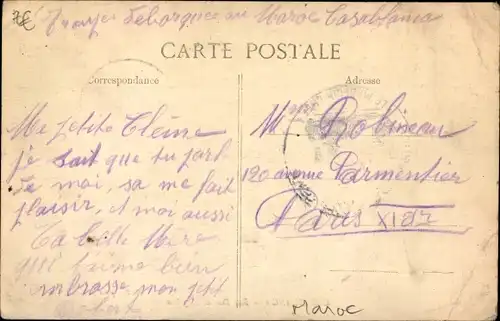 7€ Troupes Debarquee au Maroc Casablanca
CARTE POSTALE
Correspondance
Adresse
Ma petite Cleine
je sait que tu parl
de moi, sa me fait
plaisir, et moi aussi
Ta belle Mere
qui t'aime bien
embrasse mon petit
Mme Robineau
120 avenue Parmentier
Paris XI ar
Maroc